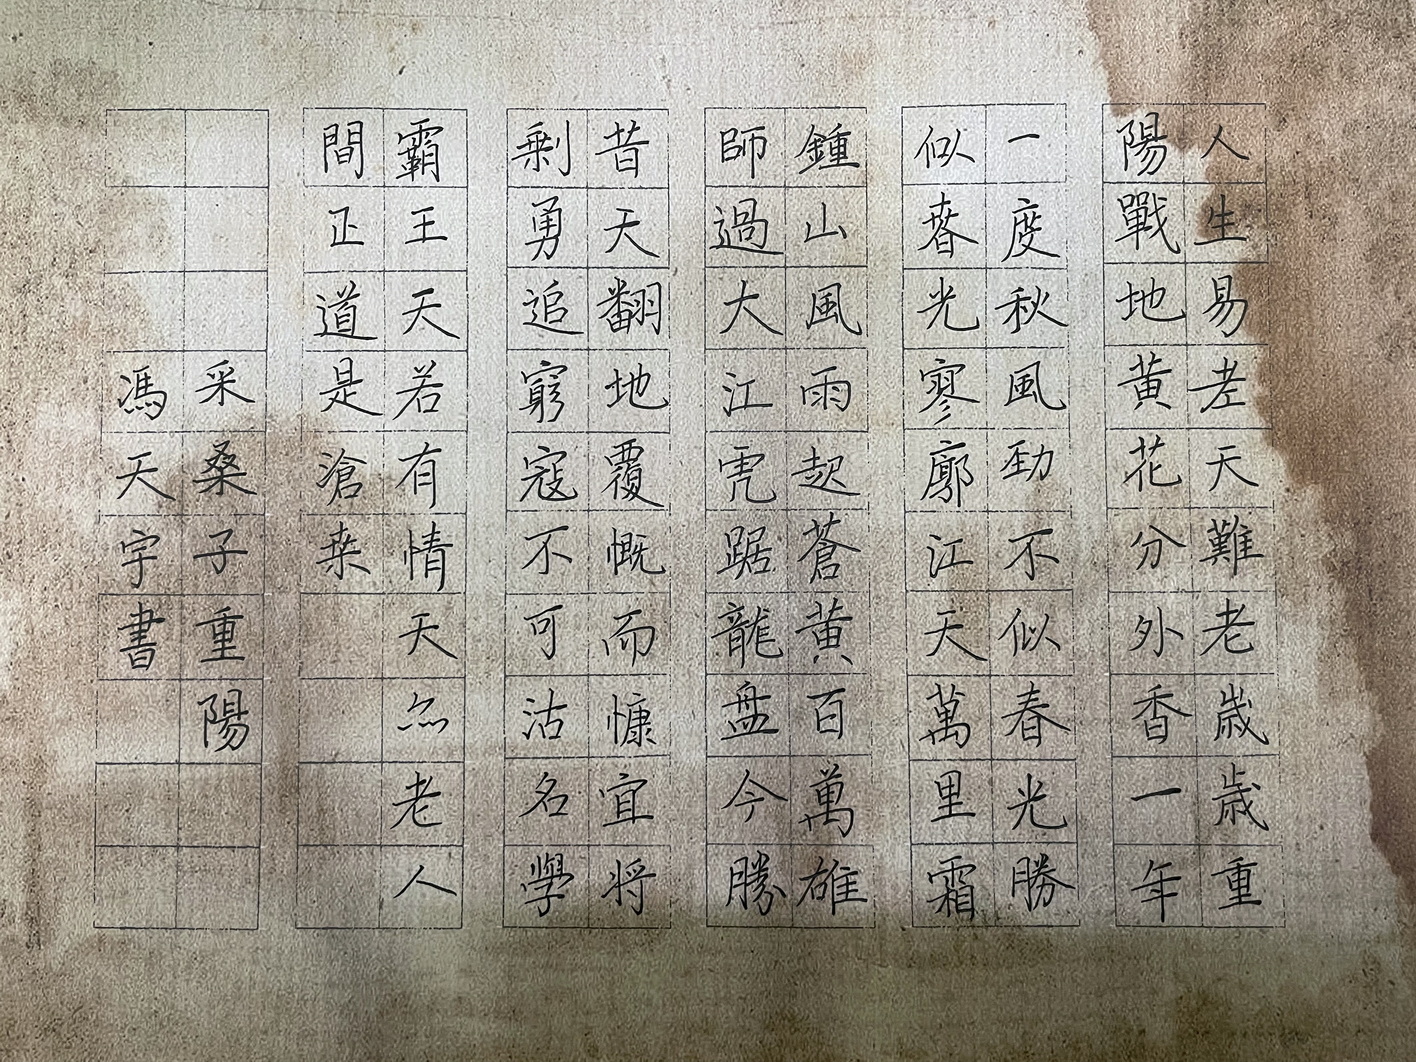 人生易老天難老歲歲重
陽戰地黃花分外香一年
一度秋風勁不似春光勝
似春光寥廓江天萬里霜
鍾山風雨起蒼黃百萬雄
師過大江虎踞龍盘今勝
昔天翻地覆慨而慷宜将
剩勇追窮寇不可沽名學
霸王天若有情天亦老人
間正道是滄桒
采桑子重陽
馮天宇書